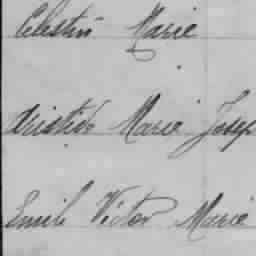 Célestin Marie
Aristide Marie Josep
Emile Victor Marie